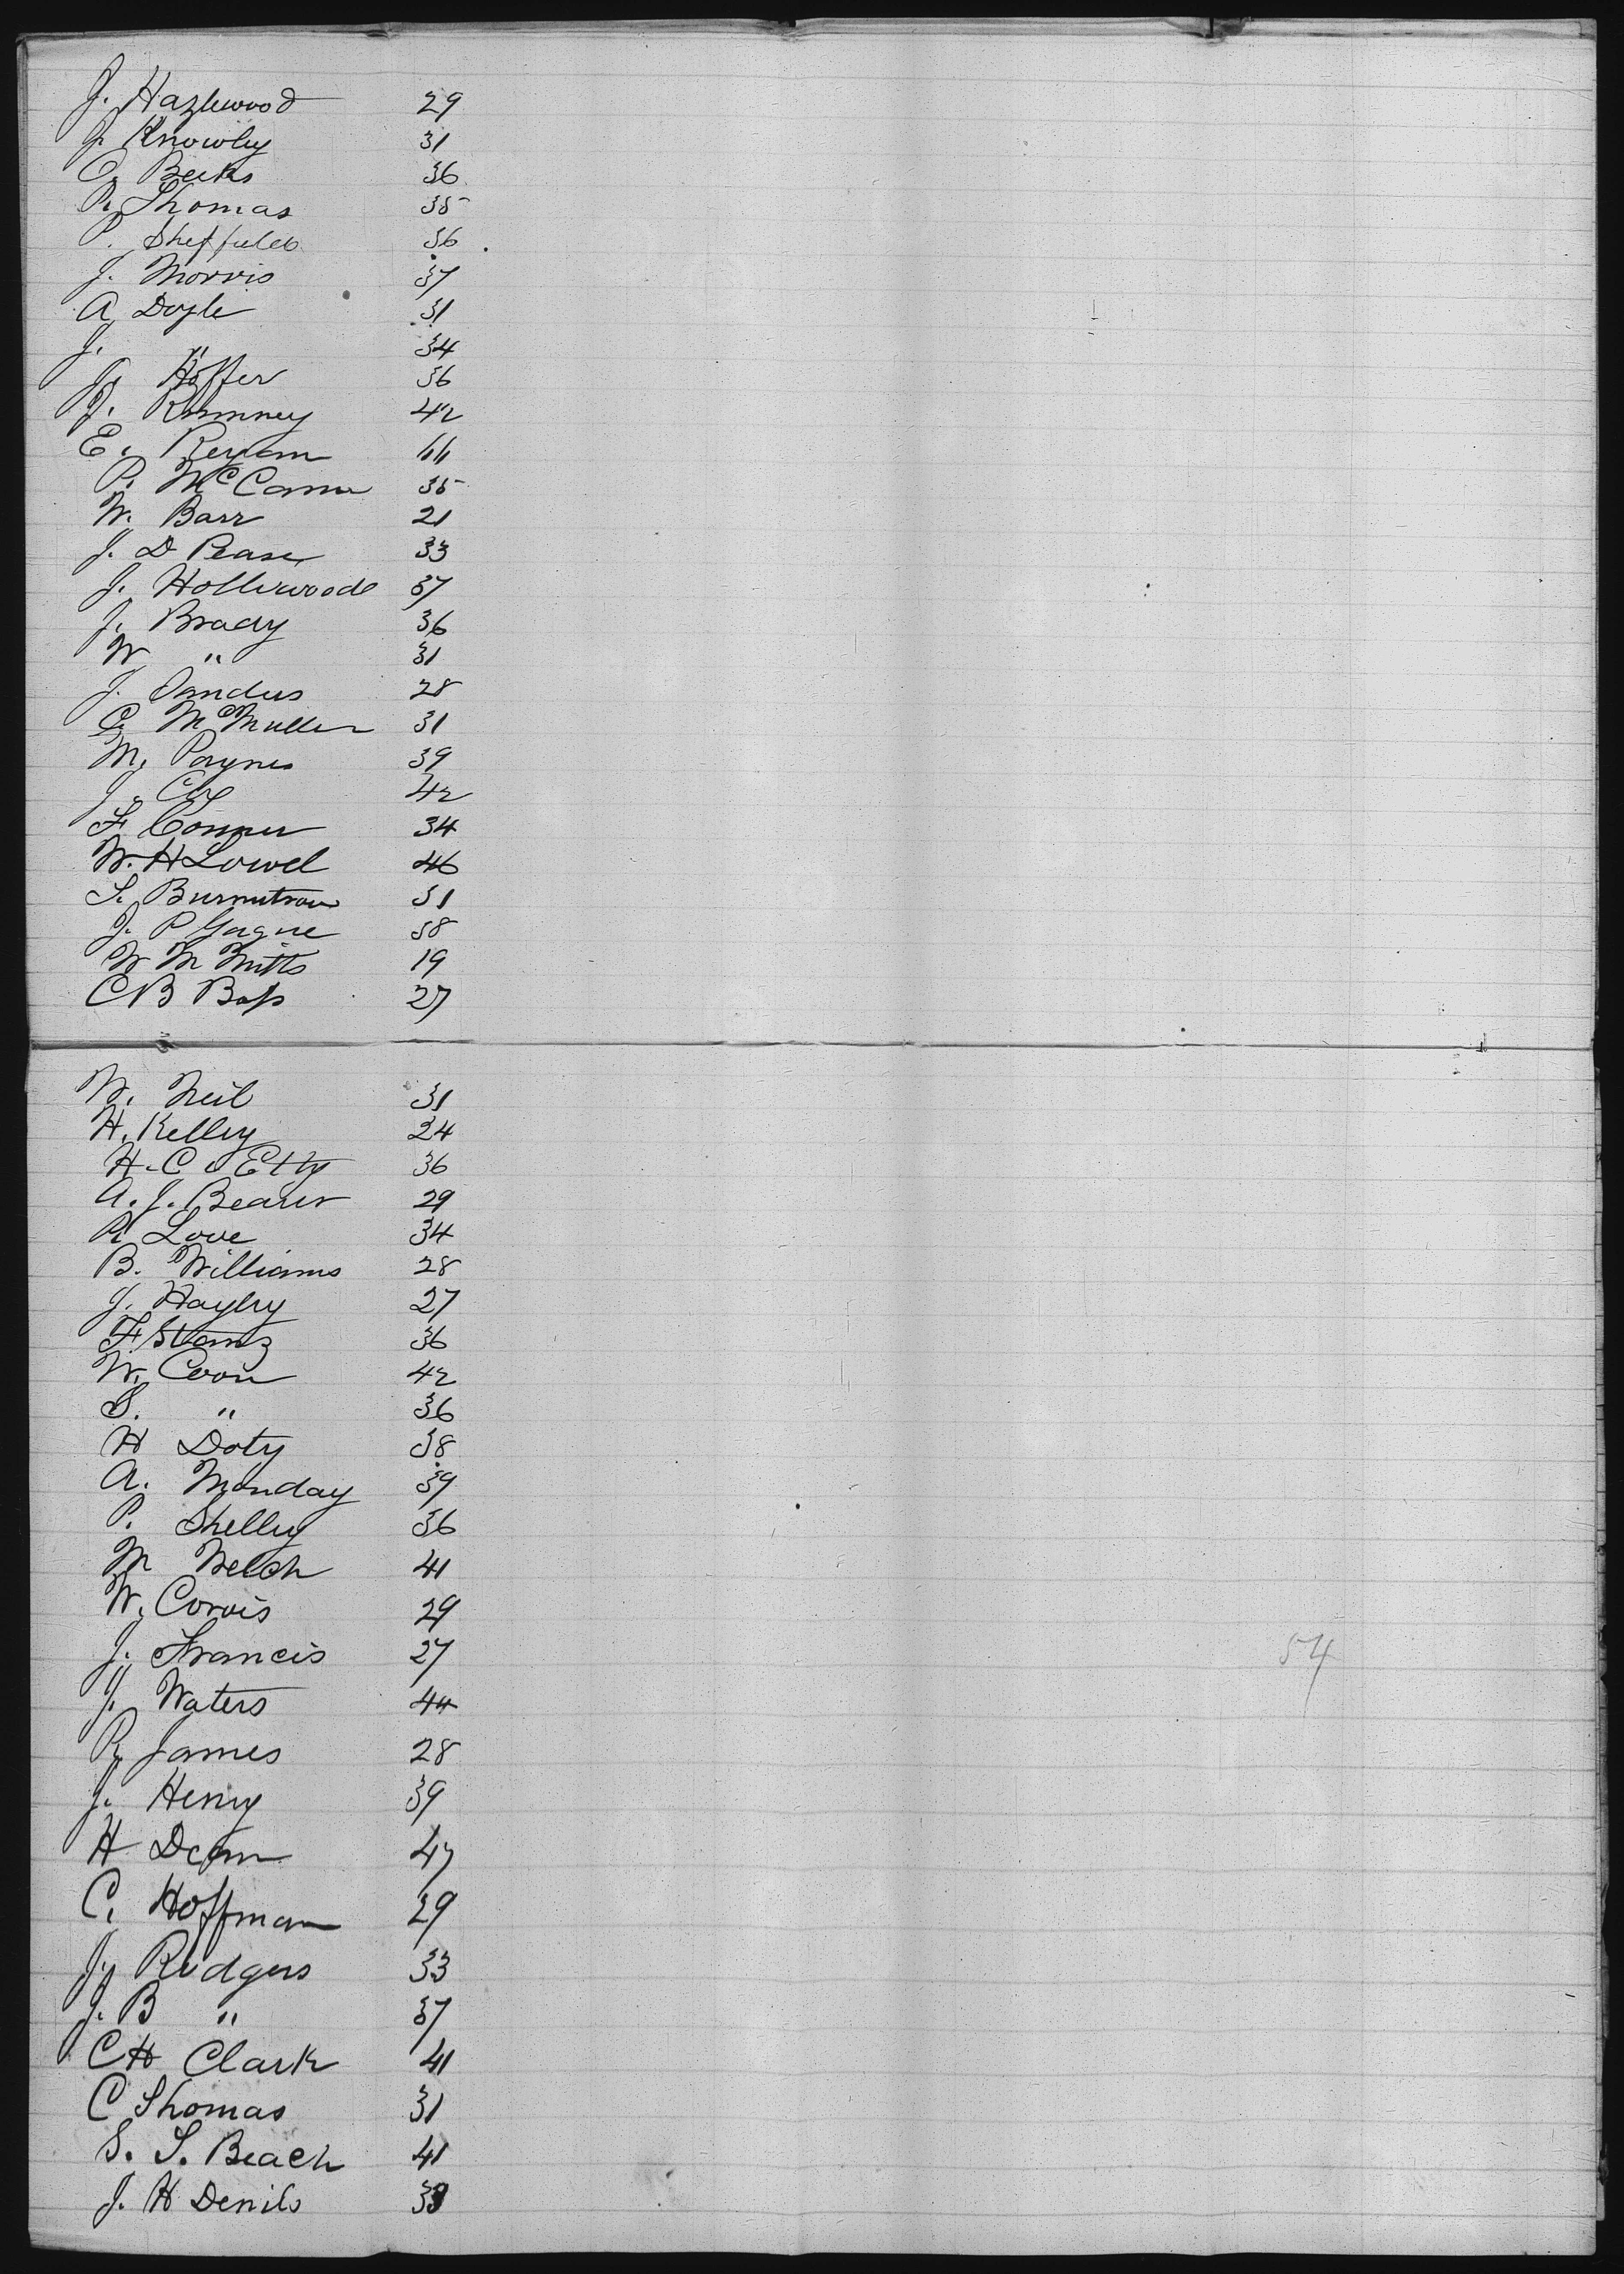 J. Hazlewood 29
J. Knowly 31
O. Beeks 36
R. Thomas 35
P. Sheffield 36
J. Morris 37
A Doyle 31
J. " 34
J. Hoffer 36
J. Rumney 42
E. Reyam 44
P. McCann 35
W. Barr 21
J. D Pease 33
J. Holliwoode 37
J. Brady 36
W " 31
J. Sanders 28
C. McMullen 31
M. Paynes 39
J. Coy 42
F. Conner 34
W. H Lowel 46
S. 31
J. P Gagne 38
W M Mitts 19
C B Bass 27
W. Neil 31
H. Kelley 24
H. C. Etty 36
A. J. Beaver 29
R Love 34
B. Williams 28
J. Hayley 27
F. Stanz 36
W. Coon 42
S. " 36
H Doty 38
A. Monday 39
P. Shelley 36
M Welch 41
W. Corvis 29
J. Francis 27
J. Waters 44
R. James 28
J. Henry 39
H Dean 47
C. Hoffman 29
J. Rudgers 33
J. B " 37
C H Clark 41
C Thomas 31
S. S. Beach 41
J. H Denils 39
54